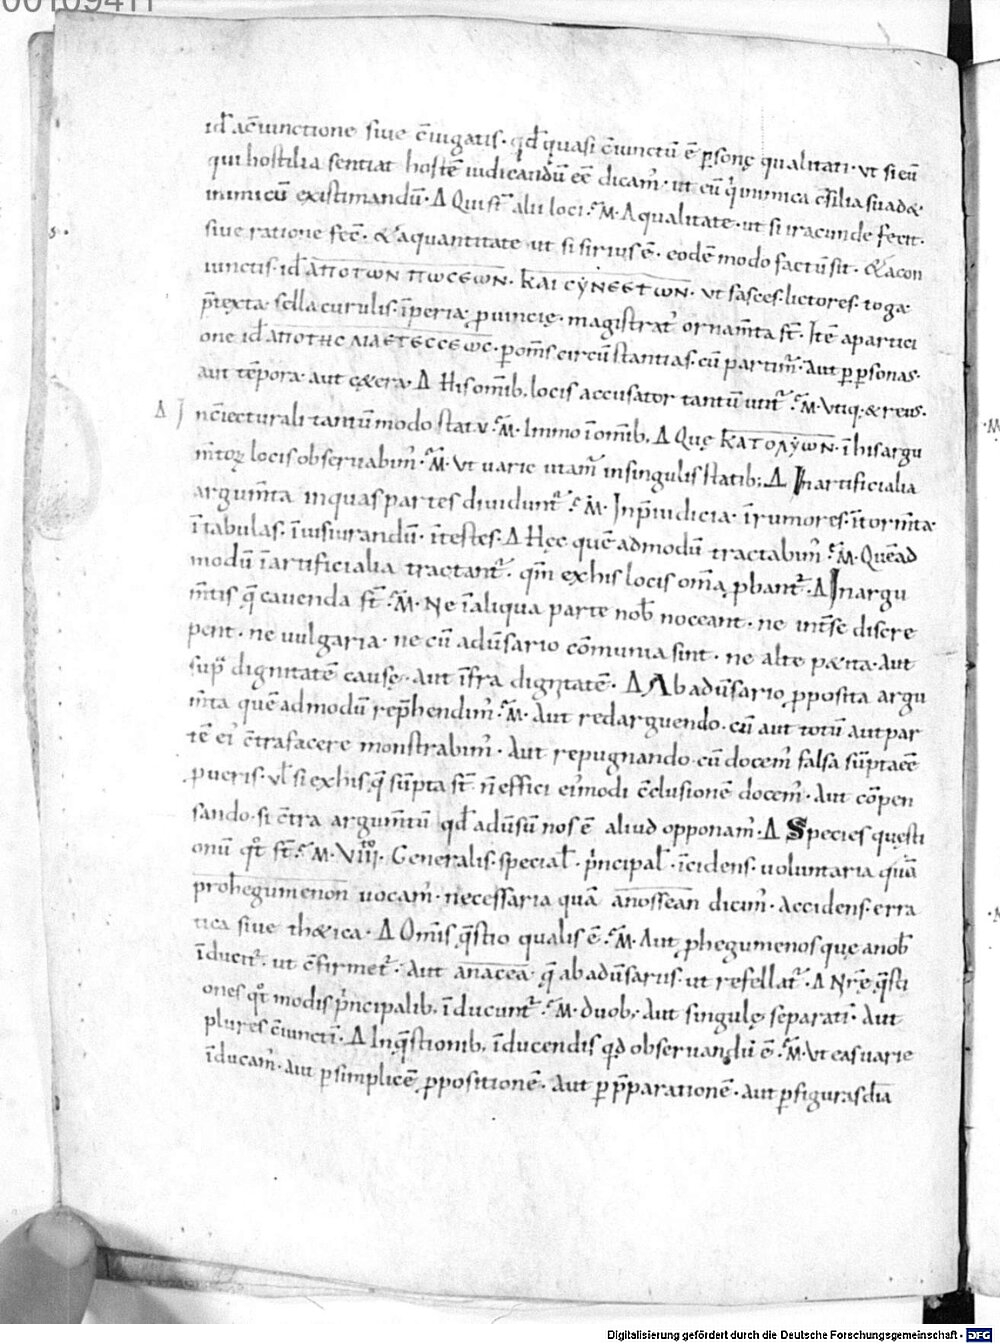 00109411
id ac̄iunctione siue c̄iugatis · qd̄ quasi c̄iunctū ē ꝑsonę qualitati · ut si eū
qui hostilia sentiat hostē iudicandū eē dicam̄ · ut eū q̄ inimica c̄silia suadet
inimicū existimandū · Δ Qui st̄ alii loci · M̄ · A qualitate · ut si iracunde fecit ·
siue ratione fec̄ · & a quantitate ut si firiuſ ē · eodē modo factū sit · & a con
iunctis · id ΑΠΟΤΩΝ ΠΩCΕΩΝ · ΚΑΙ CΥΝΕCΤΩΝ · ut fasces · lictores · toga
p̄texta · sella curulis · īperia ꝓuincię · magistrat᾽ ornam̄ta st̄ · Itē a partici
one id ΑΠΟΤΗC ΛΙΑΕΤΕCCΕΩC · ꝑ om̄s circūstantias · cū partim̄ · aut ꝑ ꝑsonas ·
aut tēpora · aut cętera · Δ His omīb; locis accusator tantū utit̄ · M̄ · Vtiq; & reus ·
Δ In c̄iecturali tantū modo statu · M̄ · Immo ī omīb; Δ Quę ΚΑΤΟΛΥΩΝ · ī his argu
m̄toꝝ locis obseruabim̄ · M̄ · Vt uarie utam̄ in singulis statib; Δ Inartificialia
argum̄ta in quas partes diuidunt̄ · M̄ · In p̄iudicia · ī rumores · ī torm̄ta ·
ī tabulas · ī iusiurandū · ī testes · Δ Hęc quēadmodū tractabim̄ · M̄ · Quēad
modū ī artificialia tractant̄ · qm̄ ex his locis om̄ia ꝓbant̄ · Δ In argu
m̄tis q̄ cauenda st̄ · M̄ · Ne ī aliqua parte nob̄ noceant · ne int̄ se discre
pent · ne uulgaria · ne cū adūsario cōmunia sint · ne alte petita · aut
sup̄ dignitatē causę · aut īfra dignitatē · Δ Ab adūsario ꝓposita argu
m̄ta quēadmodū rep̄hendim̄ · M̄ · Aut redarguendo · cū aut totū aut par
tē ei᾽ c̄trafacere monstrabim̄ · Aut repugnando cū docem̄ falsa sūpta eē
ꝓ ueris · ul̄ si ex his q̄ sūpta st̄ n̄ effici ei᾽modi c̄clusionē docem̄ · Aut cōpen
sando · si c̄tra argum̄tū qd̄ adūsū nos ē aliud opponam̄ · Δ Species questi
onū qt̄ st̄ · M̄ · VIIII · Generalis · special̄ · p̄ncipal̄ · īcidens · uoluntaria quā
prohegumenon uocam̄ · necessaria quā anosſean dicim̄ · Accidens · erra
tica siue thetica · Δ Om̄is q̄stio qualis ē · M̄ · Aut prohegumenos quę a nob̄
īducit̄ · ut c̄firmet̄ · Aut anacea q̄ ab adūsariis · ut refellat̄ · Δ Nr̄ę q̄sti
ones qt̄ modis p̄ncipalib; īducunt̄ · M̄ · duob; · Aut singulę separati · Aut
plures c̄iuncti · Δ In q̄stionib; īducendis qd̄ obseruandū ē · M̄ · Vt eas uarie
īducam̄ · aut ꝑ simplicē ꝓpositionē · Aut ꝑ p̄parationē · aut ꝑ figuras dia
Digitalisierung gefördert durch die Deutsche Forschungsgemeinschaft · DFG